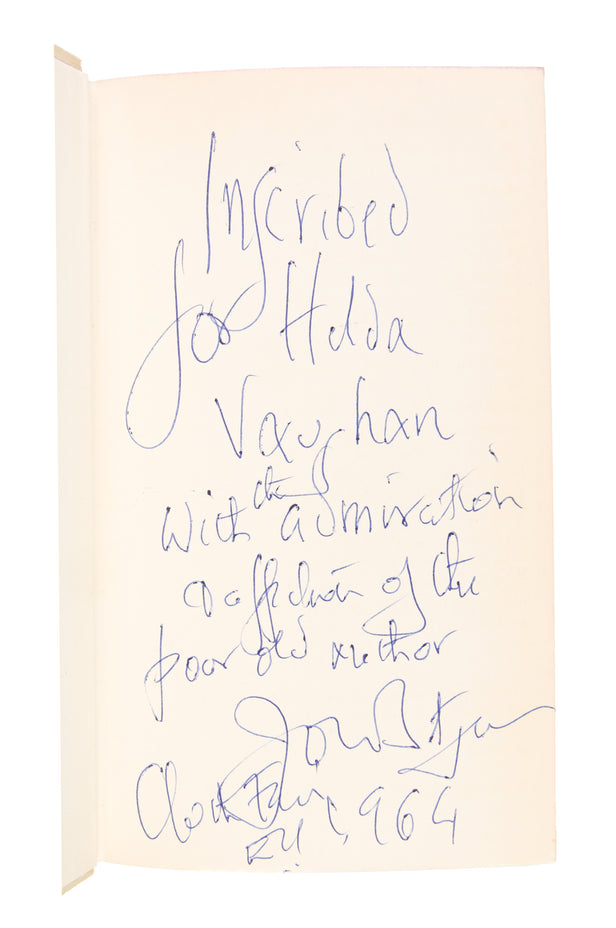 Inscribed
for Hilda
Vaughan
with the admiration
& affection of the
poor old author
John Betjeman
Cloth Fair
1964